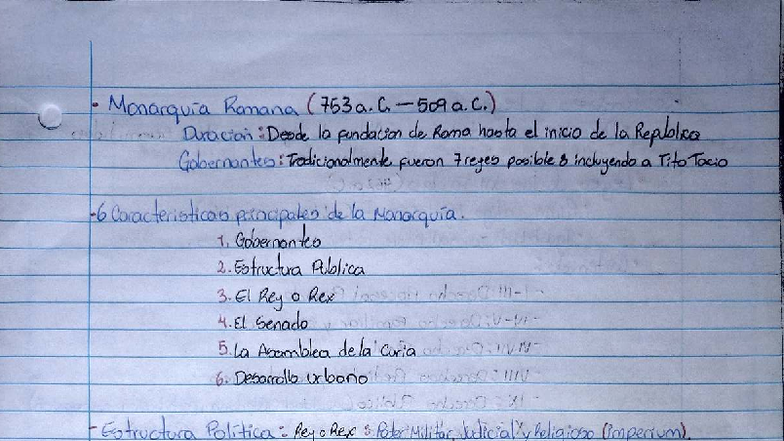 - Monarquía Romana (753 a.C. — 509 a.C.)
Duración: Desde la fundación de Roma hasta el inicio de la República
Gobernantes: Tradicionalmente fueron 7 reyes posible 8 incluyendo a Tito Tacio
- 6 Características principales de la Monarquía.
1. Gobernantes
2. Estructura Pública
3. El Rey o Rex
4. El Senado
5. La Asamblea de la Curia
6. Desarrollo urbano
- Estructura Política: Rey o Rex: Poder Militar, Judicial y Religioso (imperium).